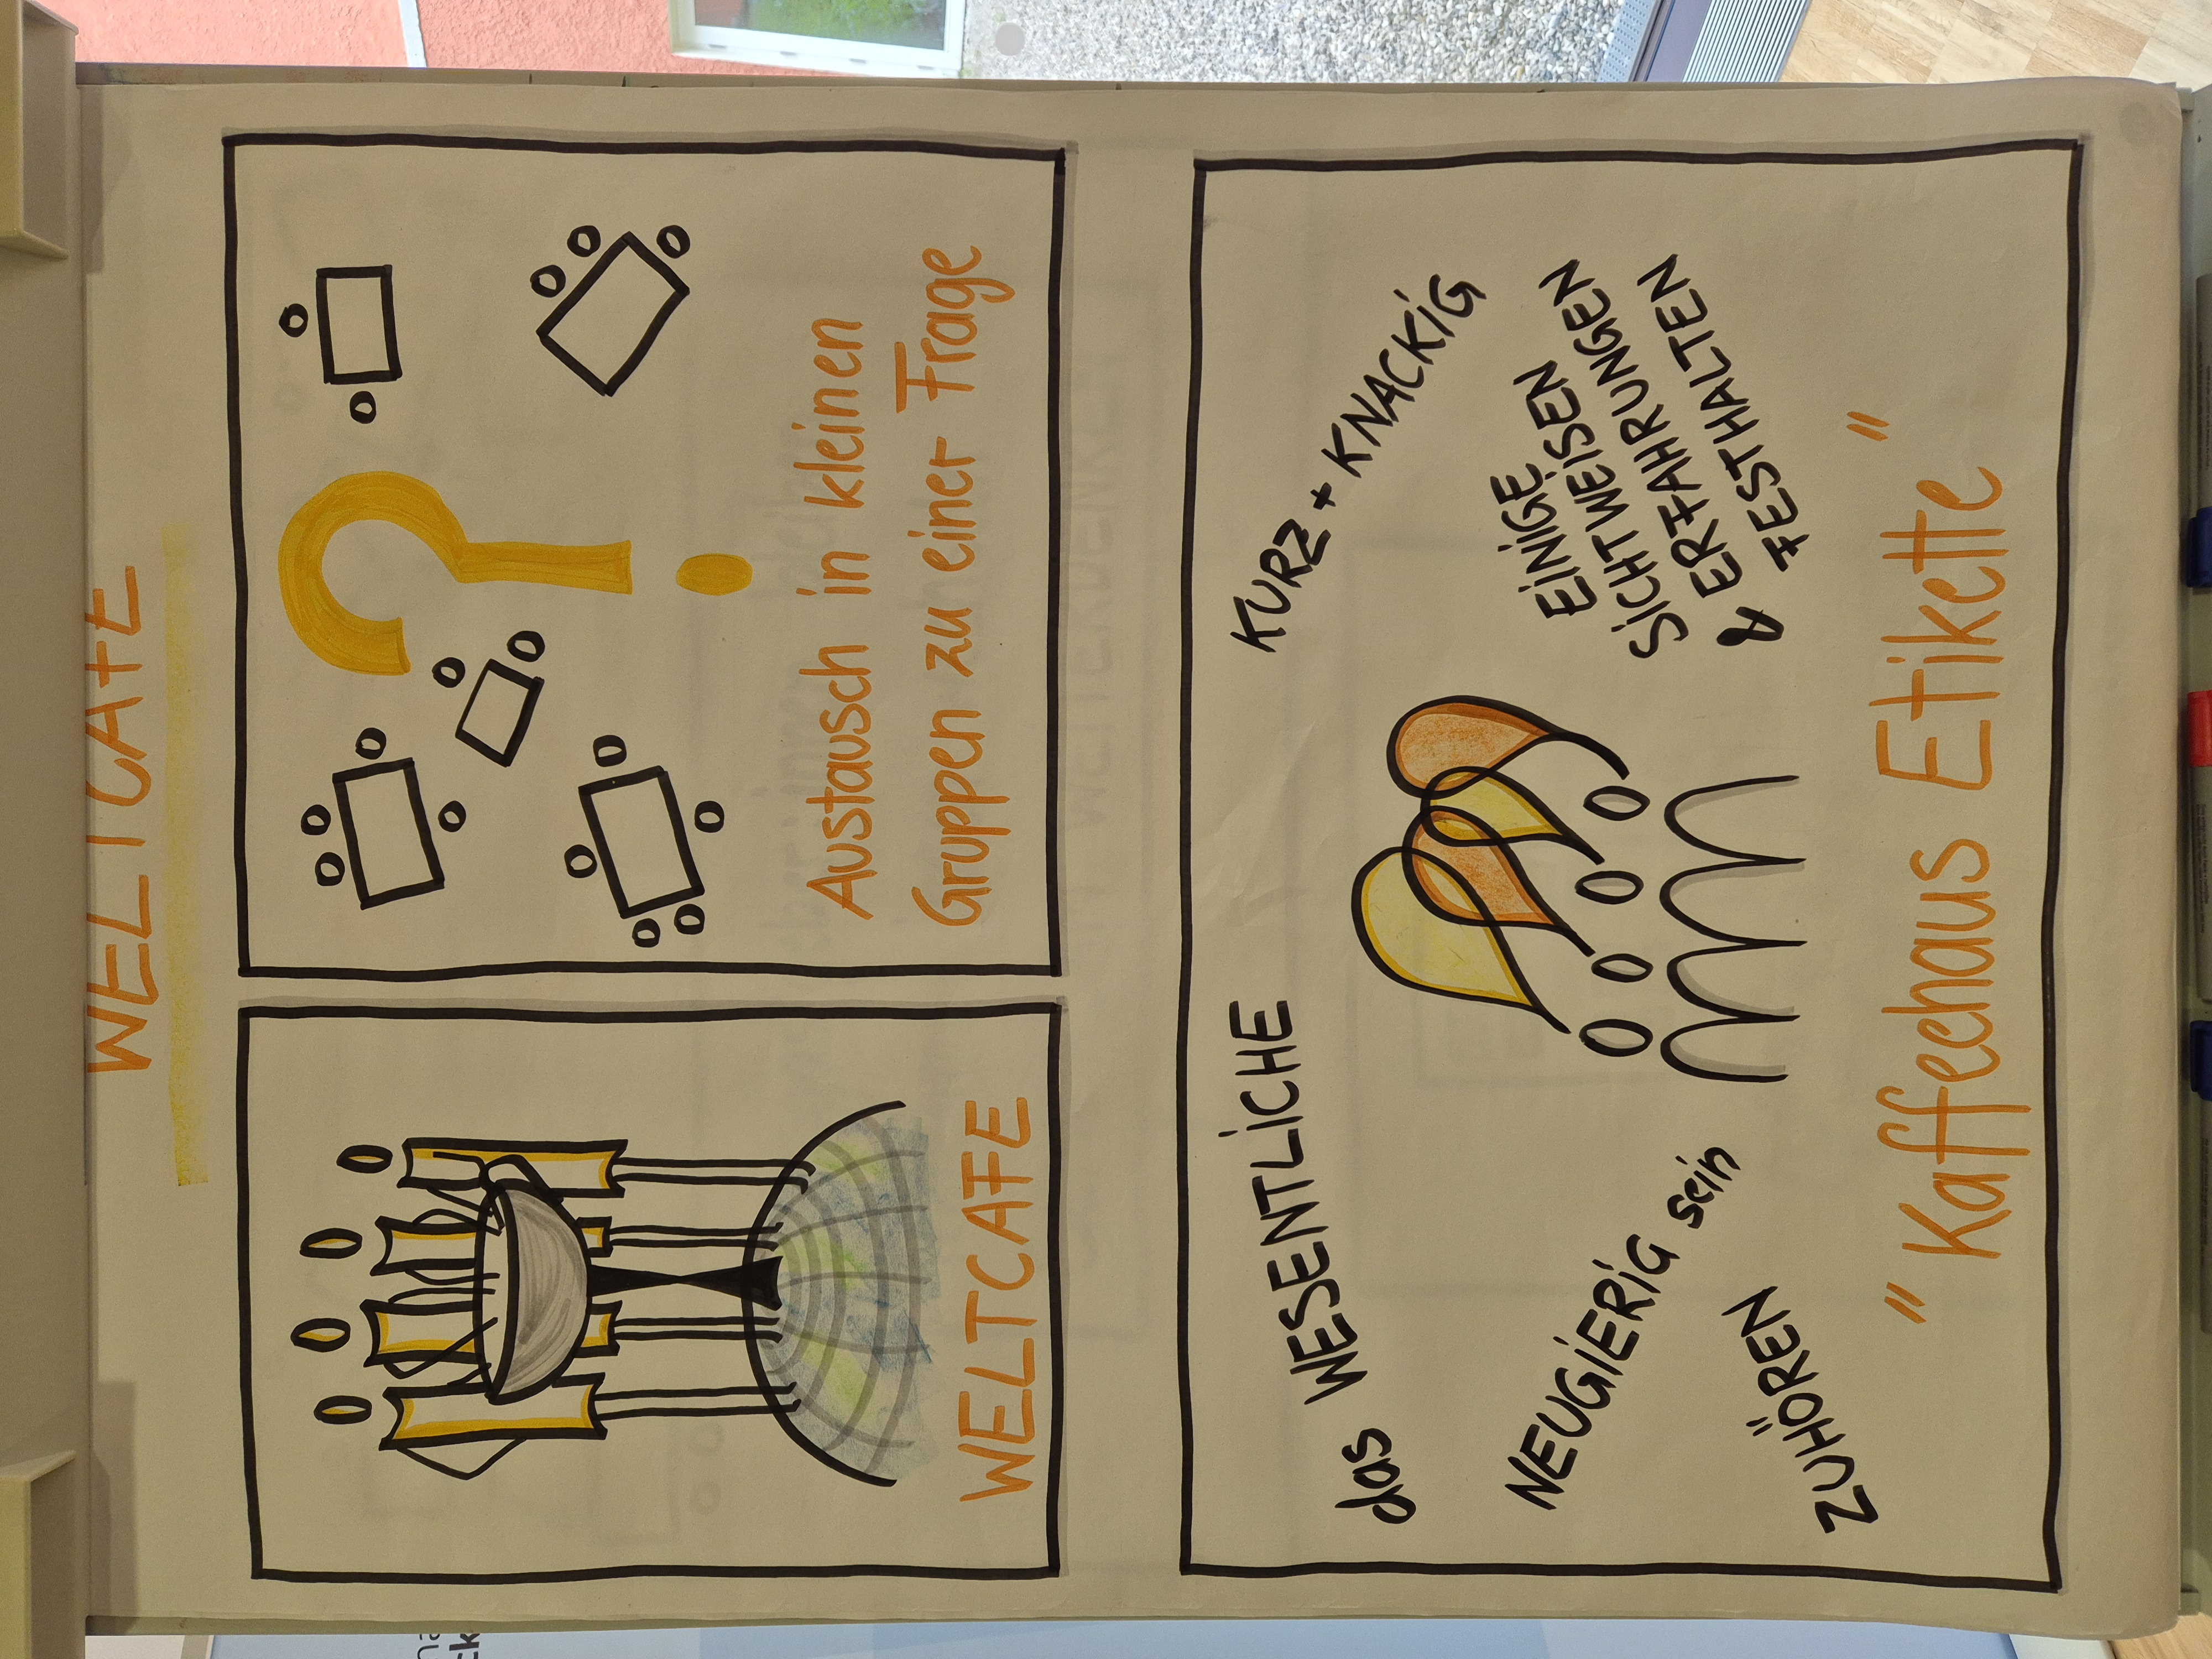 WELTCAFE
WELTCAFE
Austausch in kleinen
Gruppen zu einer Frage
das WESENTLICHE
KURZ + KNACKIG
NEUGIERIG sein
ZUHÖREN
EINIGE
SICHTWEISEN
& ERFAHRUNGEN
FESTHALTEN
"Kaffeehaus Etikette"